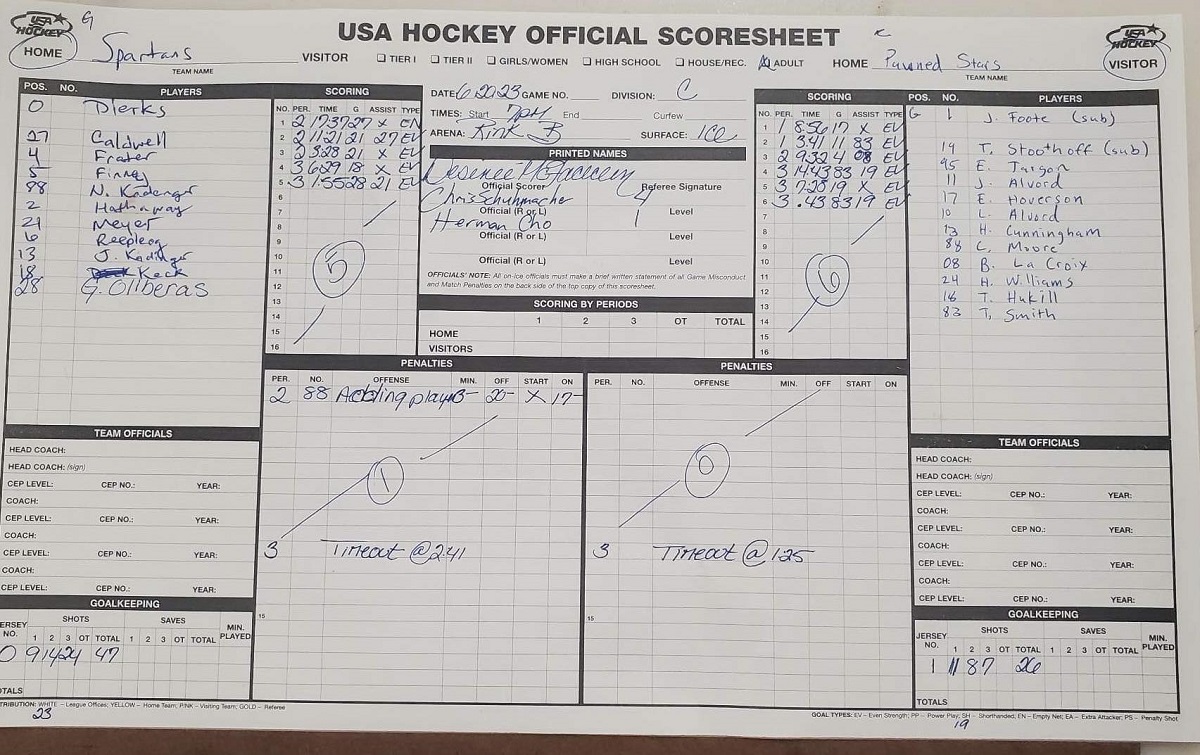 USA HOCKEY OFFICIAL SCORESHEET
USA HOCKEY
G
HOME
Spartans
TEAM NAME
VISITOR
TIER I
TIER II
GIRLS/WOMEN
HIGH SCHOOL
HOUSE/REC.
ADULT
HOME
Pawned Stars
TEAM NAME
USA HOCKEY
VISITOR
POS. NO. PLAYERS
0 Dierks
27 Caldwell
4 Frater
5 Finney
88 N. Kadinger
2 Hathaway
21 Meyer
6 Reepleog
13 J. Kadinger
18 Keck
28 G. Oliberas
SCORING
NO. PER. TIME G ASSIST TYPE
1 2 1737 27 X EN
2 2 11:21 21 27 EV
3 2 3:28 21 X EV
4 3 6:29 18 X EV
5 3 1:55 28 21 EV
6
7
8
9
10
11
12
13
14
15
16
5
DATE 6.20.23 GAME NO. DIVISION: C
TIMES: Start 7PM End Curfew
ARENA: Rink B SURFACE: ICE
PRINTED NAMES
Official Scorer Referee Signature
Chris Schuhmacher 4
Official (R or L) Level
Herman Cho 1
Official (R or L) Level
Official (R or L) Level
OFFICIALS' NOTE: All on-ice officials must make a brief written statement of all Game Misconduct
and Match Penalties on the back side of the top copy of this scoresheet.
SCORING BY PERIODS
1 2 3 OT TOTAL
HOME
VISITORS
SCORING
NO. PER. TIME G ASSIST TYPE
1 1 8:56 17 X EV
2 1 3:41 11 83 EV
3 2 9:32 4 08 EV
4 3 14:43 83 19 EV
5 3 7:28 19 X EV
6 3 .43 83 19 EV
7
8
9
10
11
12
13
14
15
16
6
POS. NO. PLAYERS
G 1 J. Foote (sub)
19 T. Stoothoff (sub)
95 E. Targon
11 J. Alvord
17 E. Hoverson
10 L. Alvord
13 H. Cunningham
88 C. Moore
08 B. La Croix
24 H. Williams
16 T. Hukill
83 T. Smith
PENALTIES
PER. NO. OFFENSE MIN. OFF START ON
2 88 Adding player 3- 20- X 17-
1
3 Timeout @ 2:41
15
PENALTIES
PER. NO. OFFENSE MIN. OFF START ON
0
3 Timeout @ 1:25
15
TEAM OFFICIALS
HEAD COACH:
HEAD COACH: (sign)
CEP LEVEL: CEP NO.: YEAR:
COACH:
CEP LEVEL: CEP NO.: YEAR:
COACH:
CEP LEVEL: CEP NO.: YEAR:
COACH:
CEP LEVEL: CEP NO.: YEAR:
GOALKEEPING
JERSEY NO. SHOTS SAVES MIN. PLAYED
1 2 3 OT TOTAL 1 2 3 OT TOTAL
0 9 14 24 47
TOTALS
TEAM OFFICIALS
HEAD COACH:
HEAD COACH: (sign)
CEP LEVEL: CEP NO.: YEAR:
COACH:
CEP LEVEL: CEP NO.: YEAR:
COACH:
CEP LEVEL: CEP NO.: YEAR:
COACH:
CEP LEVEL: CEP NO.: YEAR:
GOALKEEPING
JERSEY NO. SHOTS SAVES MIN. PLAYED
1 2 3 OT TOTAL 1 2 3 OT TOTAL
1 11 8 7 26
TOTALS
TRIBUTION: WHITE – League Offices; YELLOW – Home Team; PINK – Visiting Team; GOLD – Referee
GOAL TYPES: EV – Even Strength; PP – Power Play; SH – Shorthanded; EN – Empty Net; EA – Extra Attacker; PS – Penalty Shot
23
19